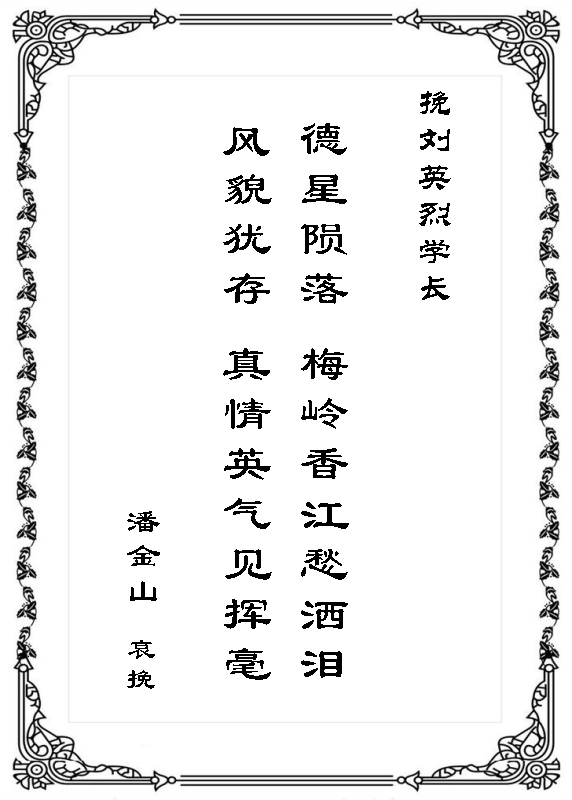 挽刘英烈学长
德星陨落 梅岭香江愁洒泪
风貌犹存 真情英气见挥毫
潘金山 哀挽